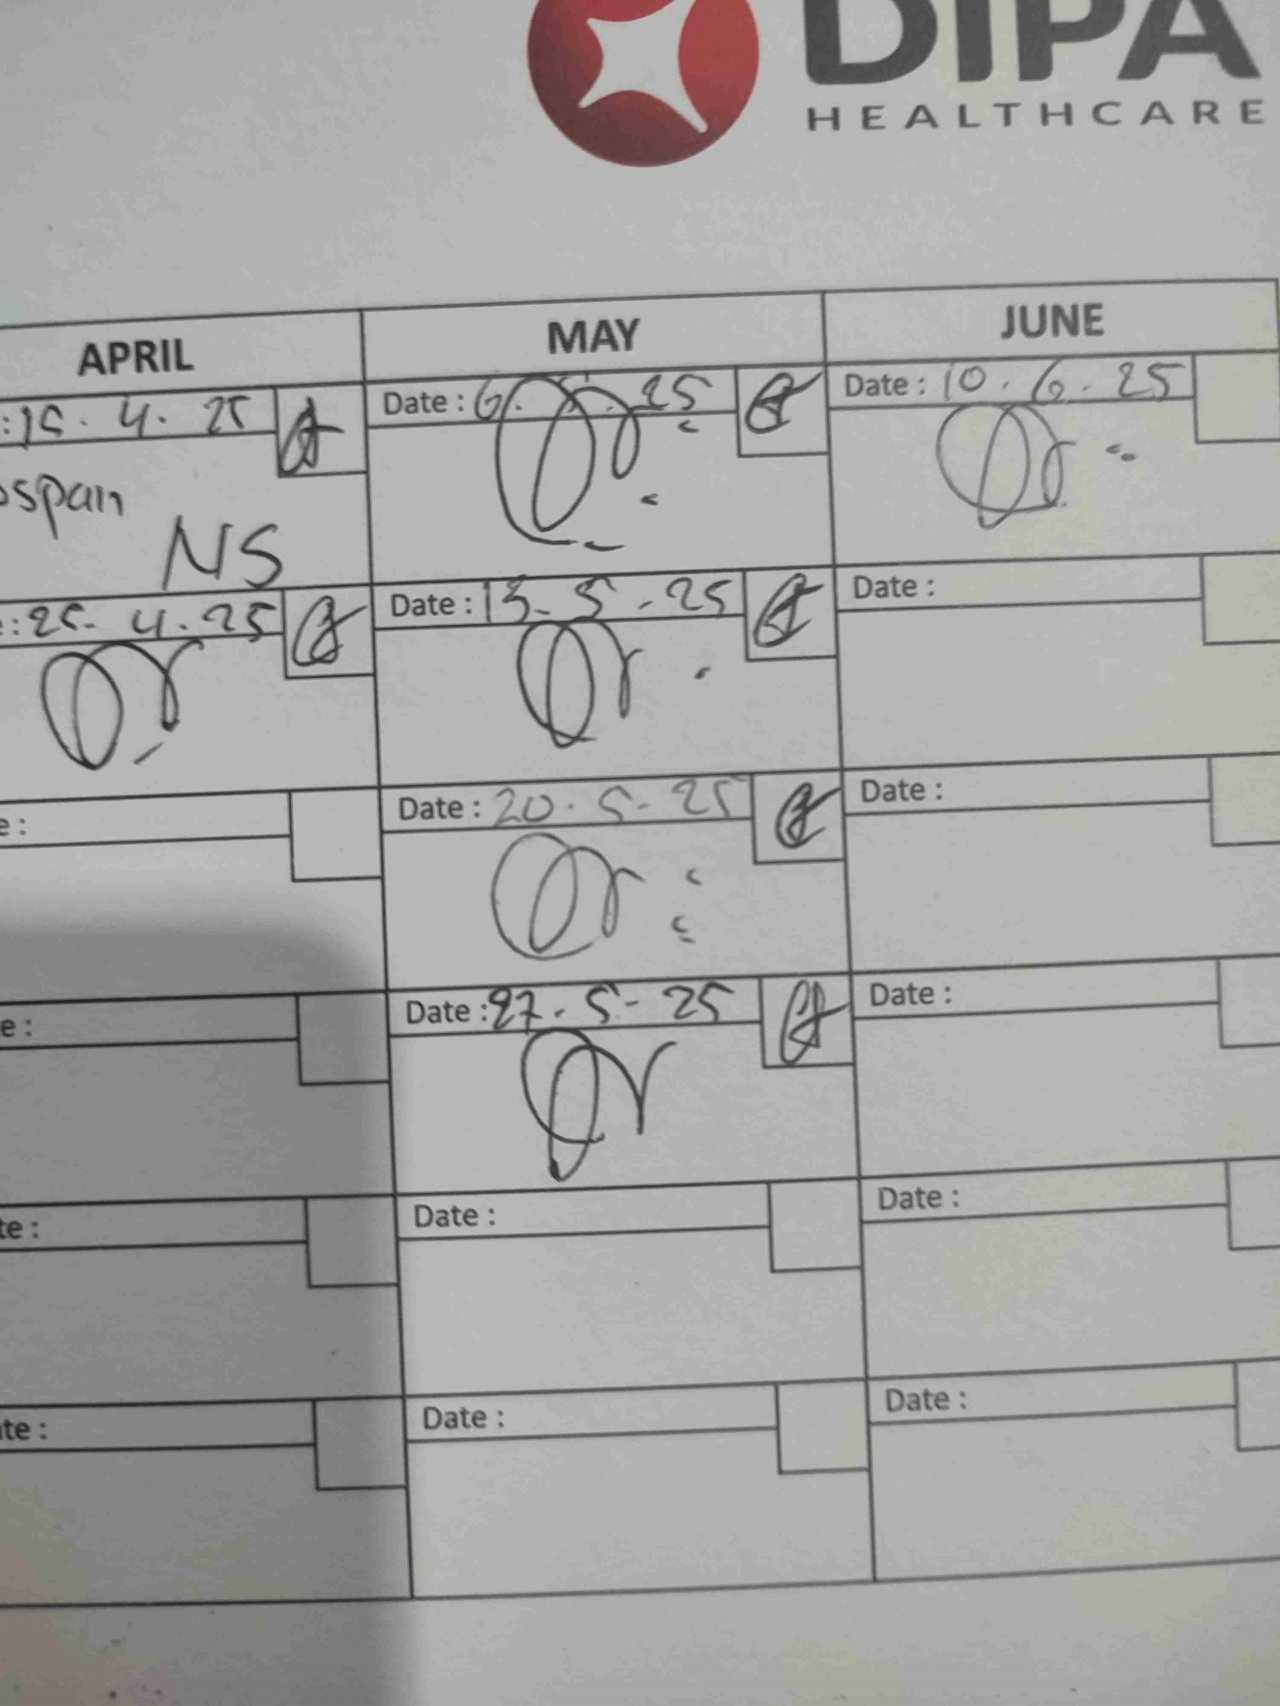 DIPA
HEALTHCARE
APRIL MAY JUNE
: 15. 4. 25 Date : 6. 5. 25 Date : 10. 6. 25
ospan
NS
e : 25. 4. 25 Date : 13- 5 - 25 Date :
e : Date : 20. 5- 25 Date :
e : Date : 27. 5- 25 Date :
te : Date : Date :
ate : Date : Date :